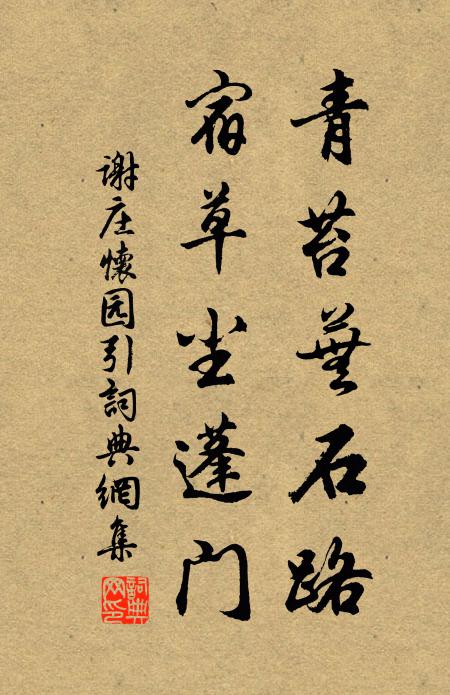 青苔蕪石路
宿草尘蓬门
谢庄懷园引詞典網集
詞典网印